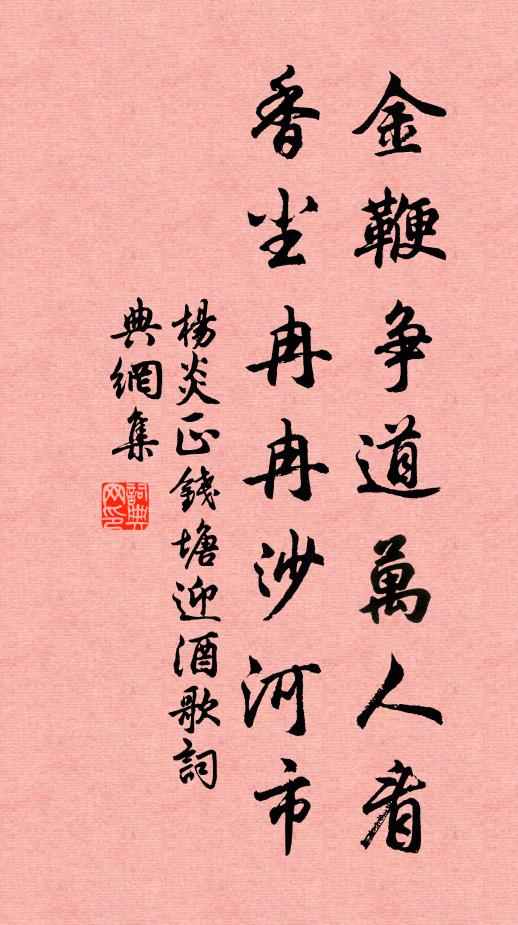 金鞭争道萬人看
香尘冉冉沙河市
楊炎正錢塘迎酒歌詞
典網集
詞典
网印